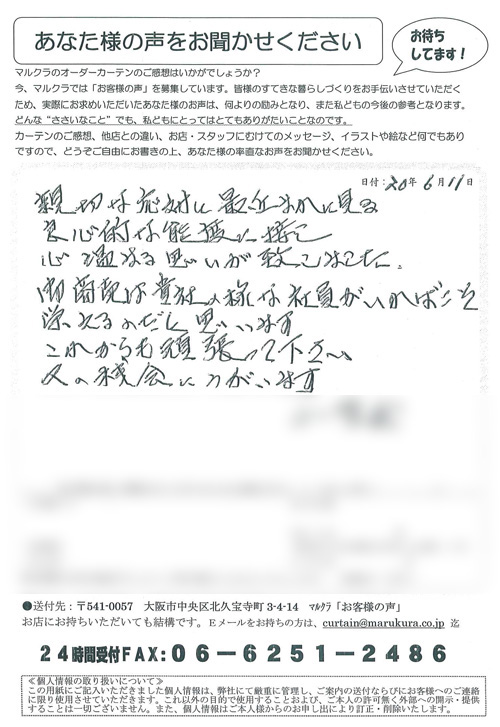 あなた様の声をお聞かせください
お待ち
してます!
マルクラのオーダーカーテンのご感想はいかがでしょうか?
今、マルクラでは「お客様の声」を募集しています。皆様のすてきな暮らしづくりをお手伝いさせていただく
ため、実際にお求めいただいたあなた様のお声は、何よりの励みとなり、また私どもの今後の参考となります。
どんな “ささいなこと” でも、私どもにとってはとてもありがたいことなのです。
カーテンのご感想、他店との違い、お店・スタッフにむけてのメッセージ、イラストや絵など何でもあり
ですので、どうぞご自由にお書きの上、あなた様の率直なお声をお聞かせください。
日付: 20年 6月 11日
親切な応対に最近まれに見る
良心的な態度に接し
心温まる思いが致しました。
御商売は貴社の様な社員がいればこそ
栄えるのだと思います
これからも頑張って下さい
又の機会にうかがいます
●送付先:〒541-0057 大阪市中央区北久宝寺町 3-4-14 マルクラ「お客様の声」
お店にお持ちいただいても結構です。Eメールをお持ちの方は、curtain@marukura.co.jp 迄
24時間受付FAX:06-6251-2486
≪個人情報の取り扱いについて≫
この用紙にご記入いただきました個人情報は、弊社にて厳重に管理し、ご案内の送付ならびにお客様へのご連絡
に限り使用させていただきます。これ以外の目的で使用することおよび、ご本人の許可無く外部への開示・提供
することは一切ございません。また、個人情報はご本人様からのお申し出により訂正・削除いたします。